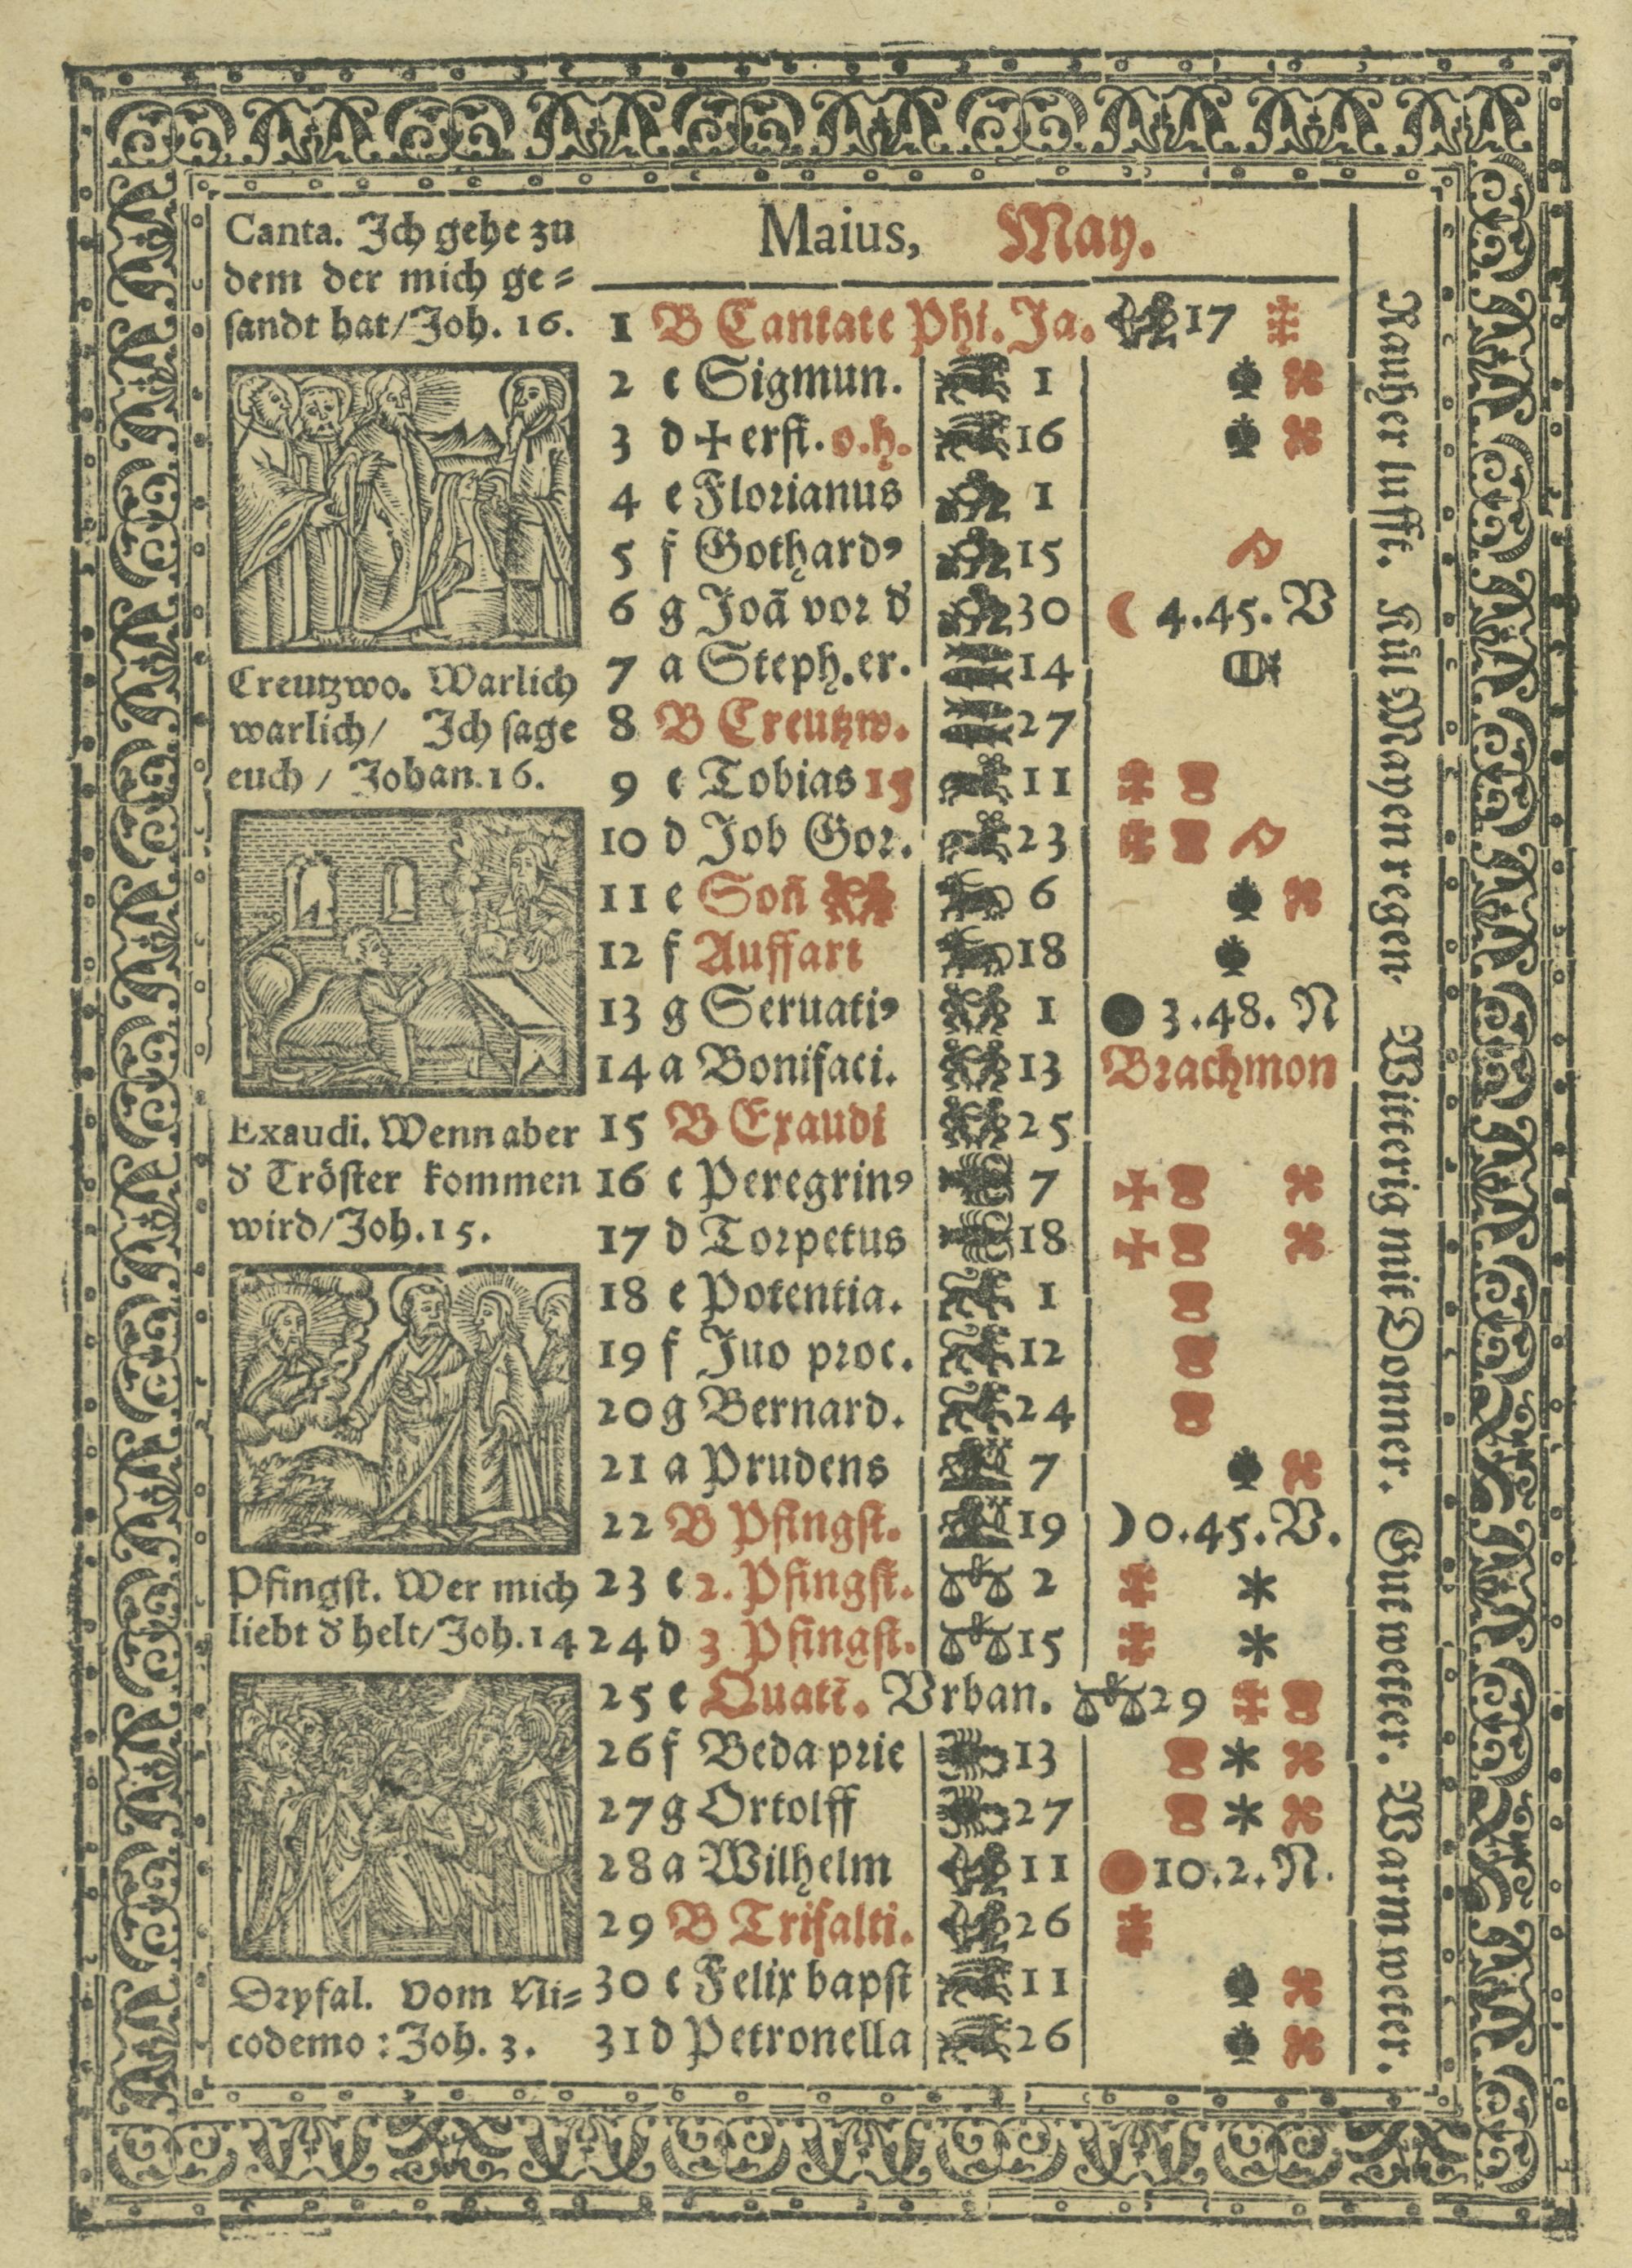 Canta. Ich gehe zu
dem der mich ge⸗
sandt hat/Joh. 16.
Creutzwo. Warlich
warlich/ Ich sage
euch / Johan. 16.
Exaudi. Wenn aber
d' Tröster kommen
wird/Joh. 15.
Pfingst. Wer mich
liebt d' helt/Joh. 14
Dryfal. Vom Ni⸗
codemo : Joh. 3.
Maius, May.
1 B Cantate Phi. Ja. 17
2 c Sigmun. 1
3 d ✠ erfi. o.h. 16
4 e Florianus 1
5 f Gothard9 15
6 g Joã vor d' 30 4.45. V
7 a Steph. er. 14
8 B Creutzw. 27
9 c Tobias 15 11
10 d Job Gor. 23
11 e Soñ 6
12 f Auffart 18
13 g Seruati9 1 3.48. N
14 a Bonifaci. 13 Brachmon
15 B Exaudi 25
16 c Peregrin9 7
17 d Torpetus 18
18 e Potentia. 1
19 f Juo proc. 12
20 g Bernard. 24
21 a Prudens 7
22 B Pfingst. 19 0.45. V.
23 c 2. Pfingst. 2
24 d 3 Pfingst. 15
25 e Quatẽ. Vrban. 29
26 f Beda prie 13
27 g Ortolff 27
28 a Wilhelm 11 10.2. N.
29 B Trifalti. 26
30 c Felix bapst 11
31 d Petronella 26
Rauher lufft. Kül Mayen regen. Witterig mit Donner. Gut wetter. Warm weter.